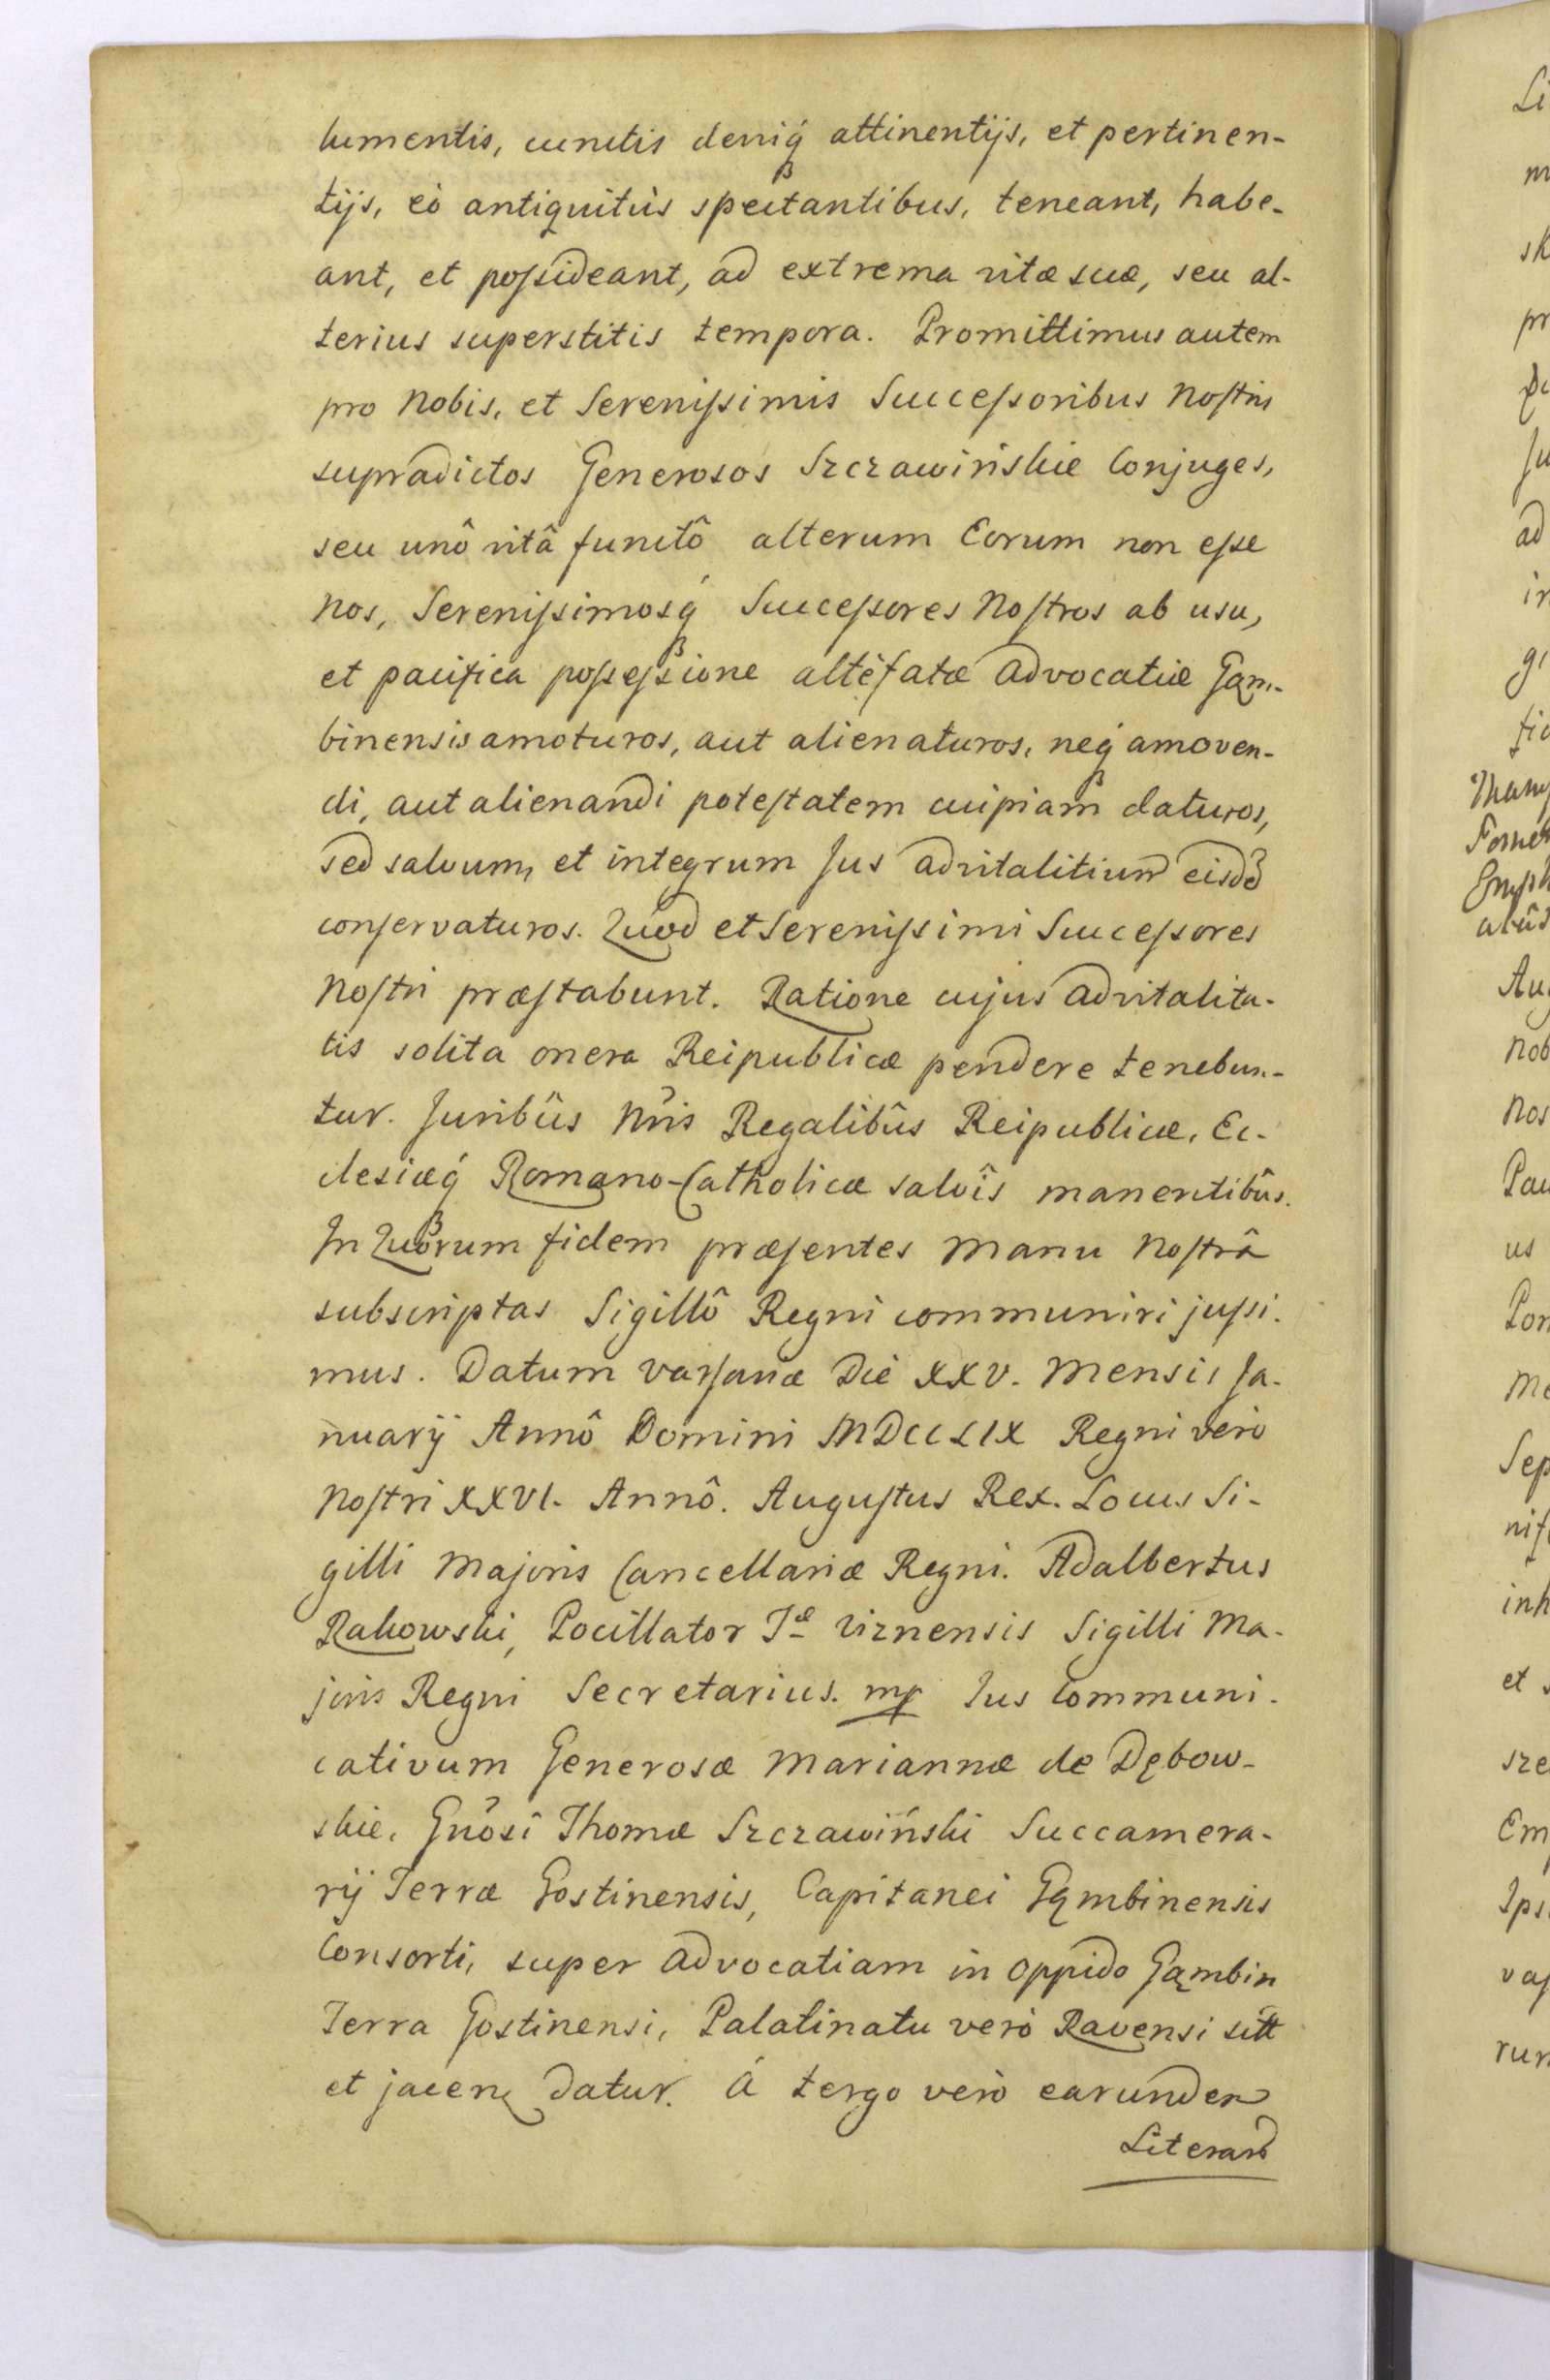 lumentis, cunctis deniq́ attinentijs, et pertinen-
tijs, eò antiquitùs spectantibus, teneant, habe-
ant, et possideant, ad extrema vitæ suæ, seu al-
terius superstitis tempora. Promittimus autem
pro Nobis, et Serenissimis Successoribus Nostris
supradictos Generosos Szczawińskie Conjuges,
seu unô vitâ functô alterum Eorum non esse
Nos, Serenissimosq́ Successores Nostros ab usu,
et pacifica possessione altèfatæ Advocatiæ Gąm-
binensis amoturos, aut alienaturos, neq́ amoven-
di, aut alienandi potestatem cuipiam daturos,
sed salvum, et integrum Jus advitalitium eisdē
conservaturos. Quod et Serenissimi Successores
Nostri præstabunt. Ratione cujus advitalita-
tis solita onera Reipublicæ pendere tenebun-
tur. Juribûs Nris Regalibûs Reipublicæ, Ec-
clesiæq́ Romano-Catholicæ salvîs manentibûs.
In Quorum fidem præsentes Manu Nostrâ
subscriptas Sigillô Regni communiri jussi-
mus. Datum Varsaviæ Die XXV. Mensis Ja-
nuarij Annô Domini MDCCLIX Regni verò
Nostri XXVI. Annô. Augustus Rex. Locus Si-
gilli Majoris Cancellariæ Regni. Adalbertus
Rakowski, Pocillator Tæ Viznensis Sigilli Ma-
joris Regni Secretarius. mp Jus Communi-
cativum Generosæ Mariannæ de Dębow-
skie, Gnosi Thomæ Szczawiński Succamera-
rij Terræ Gostinensis, Capitanei Gąmbinensis
Consorti, super Advocatiam in Oppido Gąmbin
Terra Gostinensi, Palatinatu verò Ravensi sitt
et jacen datur. À tergo verò earundem
Literarū